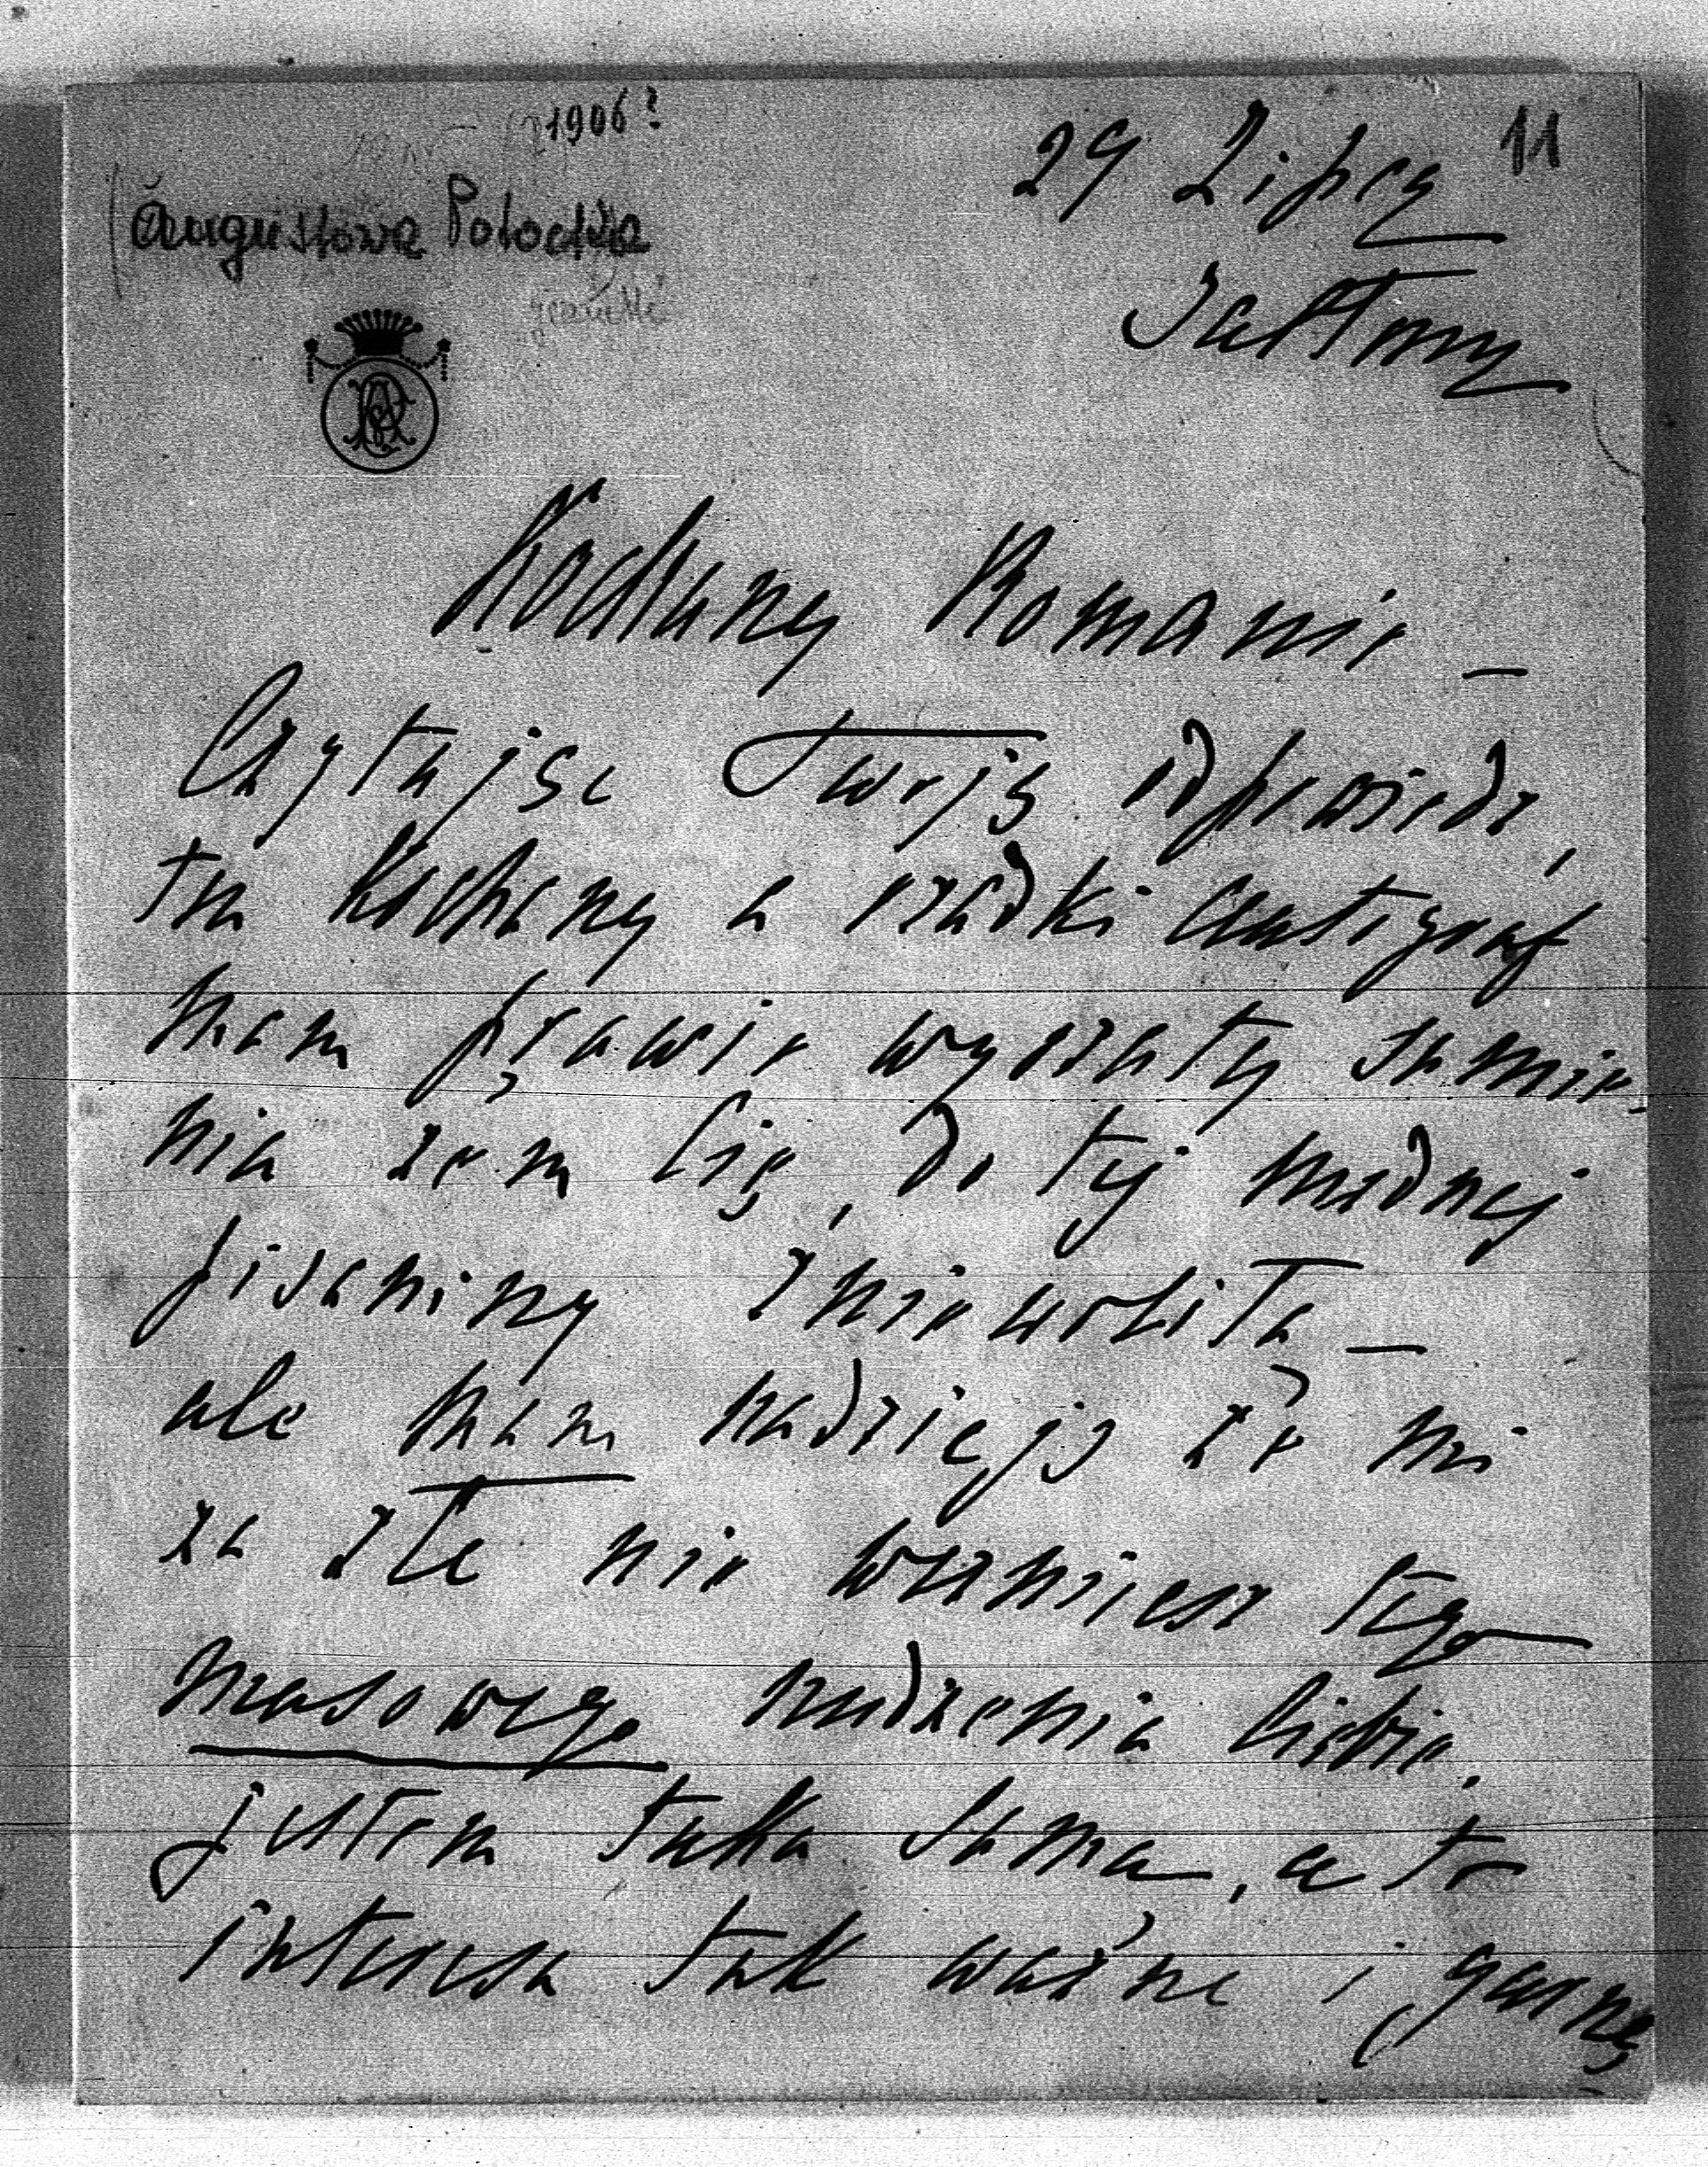 1906?
29 Lipcy 11
Augustowa Potocka
Jabłonny
Kochany Romanie –
Czytając Twoją odpowiedź,
ten kochany a rzadki autograf
mam prawie wyrzuty sumie-
nia żem Cię, do tej nudnej
pisaniny zniewoliła –
ale mam nadzieję że mi
za złe nie weźmiesz tego
masowego nudzenia Ciebie,
jestem taka sama, a to
interesa tak ważne i